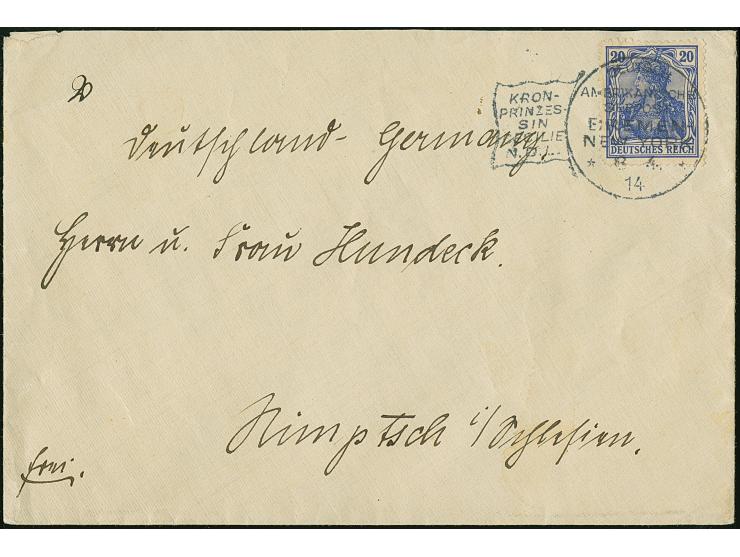 20 20
DEUTSCHES REICH
KRON-
PRINZES-
SIN
N.D.L.
BREMEN
NEW-YORK
* 4. *
14
Deutschland - Germany.
Herrn u. Frau Hundeck.
Nimptsch i/Schlesien.
frei.